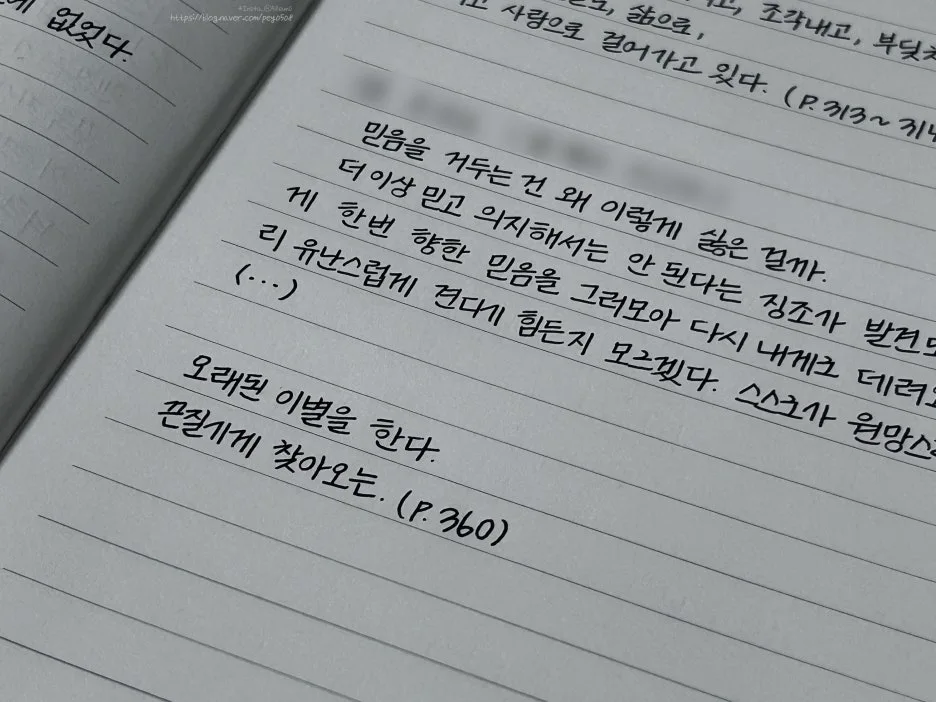 없었다.
조각내고, 부딪
삶으로,
사람으로 걸어가고 있다. (P.313~314
믿음을 거두는 건 왜 이렇게 싫은 걸까.
더 이상 믿고 의지해서는 안 된다는 징조가 발견
게 한번 향한 믿음을 그러모아 다시 내게로 데려
리 유난스럽게 견디기 힘든지 모르겠다. 스스로가 원망스
(...)
오래된 이별을 한다.
끈질기게 찾아오는. (P.360)